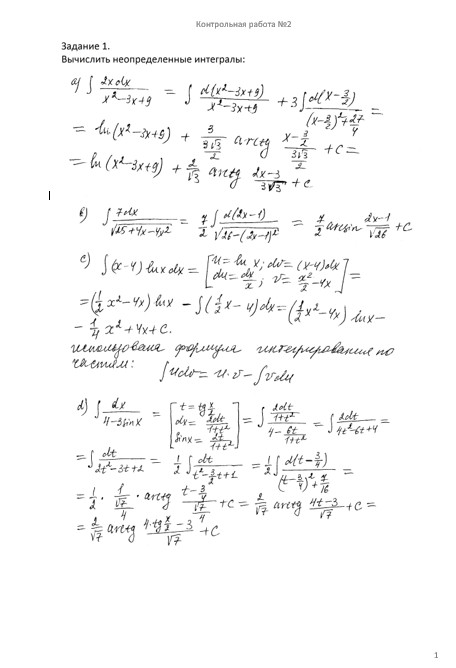 Контрольная работа №2
Задание 1.
Вычислить неопределенные интегралы:
a) ∫ 2xdx/(x²-3x+9) = ∫ d(x²-3x+9)/(x²-3x+9) + 3∫ d(x-3/2)/((x-3/2)²+27/4) =
= ln(x²-3x+9) + 3/(3√3/2) arctg (x-3/2)/(3√3/2) + C =
= ln(x²-3x+9) + 2/√3 arctg (2x-3)/(3√3) + C.
b) ∫ 7dx/√(25+4x-4x²) = 7/2 ∫ d(2x-1)/√(26-(2x-1)²) = 7/2 arcsin (2x-1)/√26 + C
c) ∫(x-4) lnx dx = [u = ln x; dv = (x-4)dx
du = dx/x; v = x²/2 - 4x] =
= (1/2 x² - 4x) lnx - ∫(1/2 x - 4)dx = (1/2 x² - 4x) lnx -
- 1/4 x² + 4x + C.
использована формула интегрирования по
частям: ∫udv = u·v - ∫vdu
d) ∫ dx/(4-3sinx) = [t = tg x/2
dx = 2dt/(1+t²)
sinx = 2t/(1+t²)] = ∫ (2dt/(1+t²))/(4 - 6t/(1+t²)) = ∫ 2dt/(4t²-6t+4) =
= ∫ dt/(2t²-3t+2) = 1/2 ∫ dt/(t²-3/2t+1) = 1/2 ∫ d(t-3/4)/((t-3/4)²+7/16) =
= 1/2 · 1/(√7/4) · arctg (t-3/4)/(√7/4) + C = 2/√7 arctg (4t-3)/√7 + C =
= 2/√7 arctg (4·tg x/2 - 3)/√7 + C
1